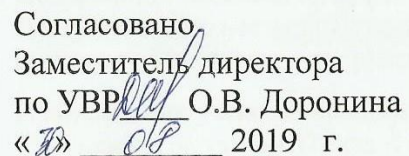 Согласовано
Заместитель директора
по УВР О.В. Доронина
«30» 08 2019 г.